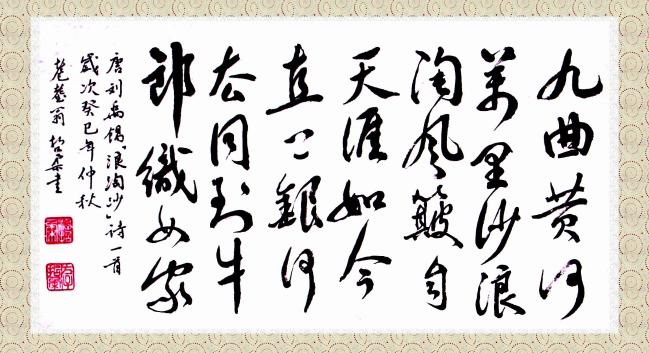 九曲黄河
萬里沙浪
淘风簸自
天涯如今
直上銀河
去同到牛
郎織女家
唐刘禹锡「浪淘沙」诗一首
歲次癸巳年仲秋
耄耋翁 書